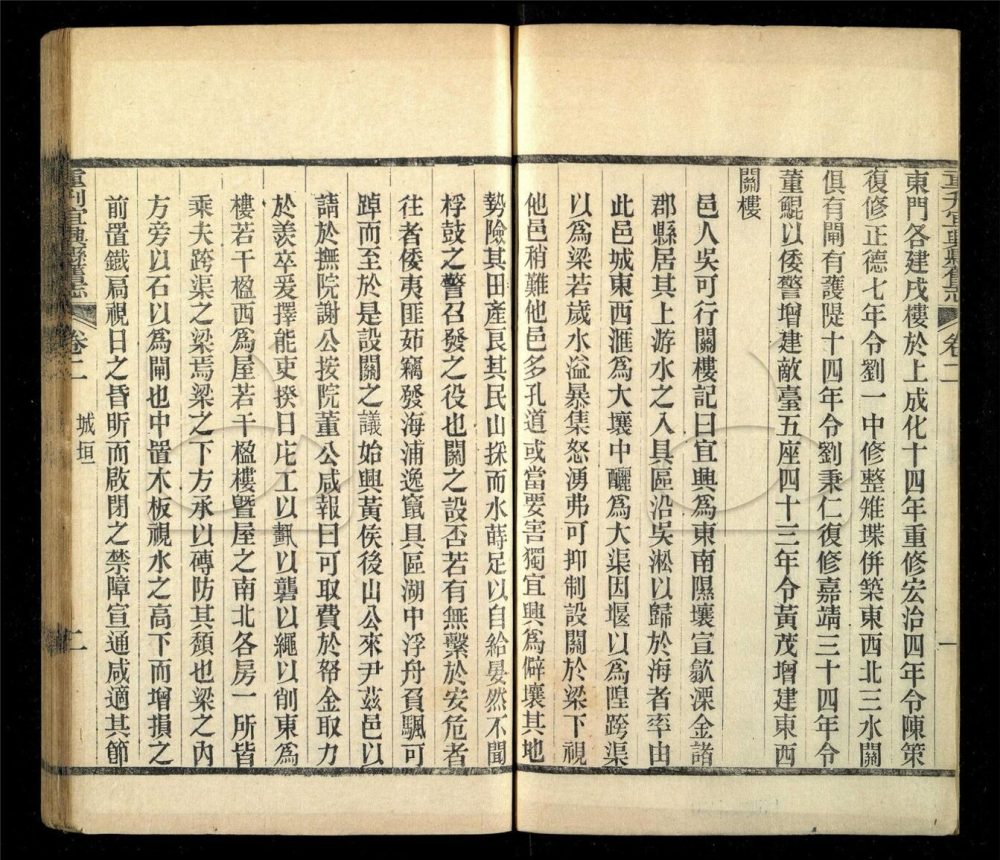 重刊宜興縣舊志 卷二 一
東門各建戍樓於上成化十四年重修宏治四年令陳策
復修正德七年令劉一中修整雉堞併築東西北三水關
俱有閘有護隄十四年令劉秉仁復修嘉靖三十四年令
董鯤以倭警增建敵臺五座四十三年令黃茂增建東西
關樓
邑人吳可行關樓記曰宜興為東南隰壤宣歙溧金諸
郡縣居其上游水之入具區沿吳淞以歸於海者率由
此邑城東西滙為大壤中釃為大渠因堰以為隍跨渠
以為梁若歲水溢暴集怒湧弗可抑制設關於梁下視
他邑稍難他邑多孔道或當要害獨宜興為僻壤其地
勢險其田產良其民山採而水蒔足以自給晏然不聞
桴鼓之警召發之役也關之設否若有無繫於安危者
往者倭夷匪茹竊發海浦逸竄具區湖中浮舟負颿可
踔而至於是設關之議始興黃侯後山公來尹茲邑以
請於撫院謝公按院董公咸報曰可取費於帑金取力
於羨卒爰擇能吏揆日庀工以斸以礱以繩以削東為
樓若干楹西為屋若干楹樓暨屋之南北各房一所皆
乘夫跨渠之梁焉梁之下方承以磚防其頹也梁之內
方旁以石以為閘也中置木板視水之高下而增損之
前置鐵扃視日之昏昕而啟閉之禁障宣通咸適其節
重刊宜興縣舊志 卷二 城垣 二